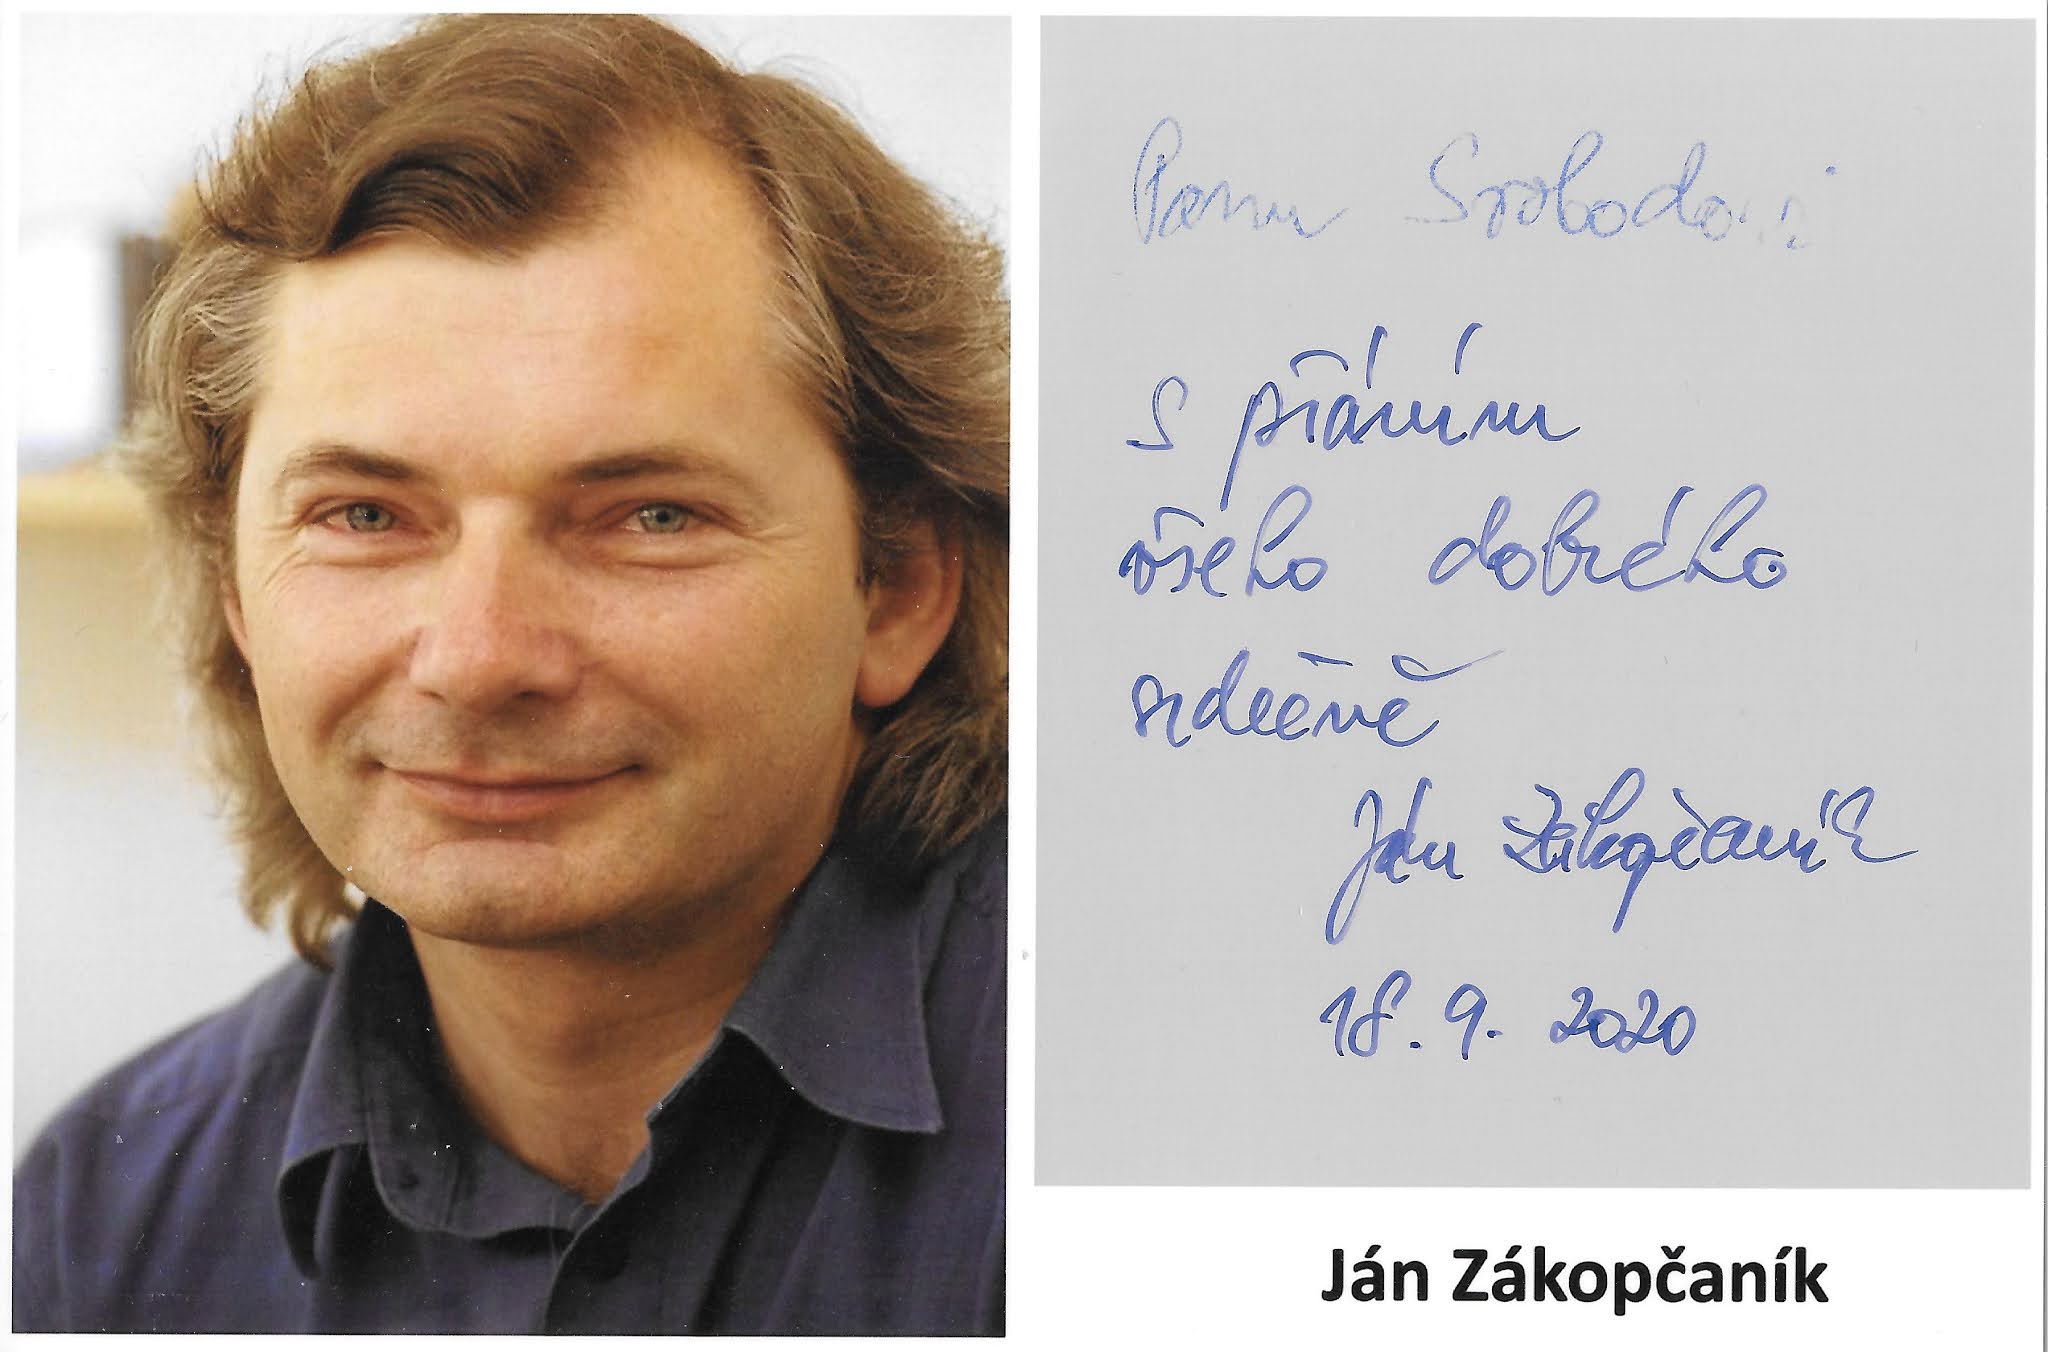 Panu Svobodovi
s přáním
všeho dobrého
srdečně
Ján Zákopčaník
18. 9. 2020
Ján Zákopčaník